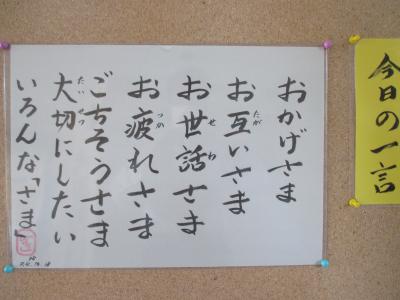 今日の一言
おかげさま
お互いさま
お世話さま
お疲れさま
ごちそうさま
大切にしたい
いろんな「さま」